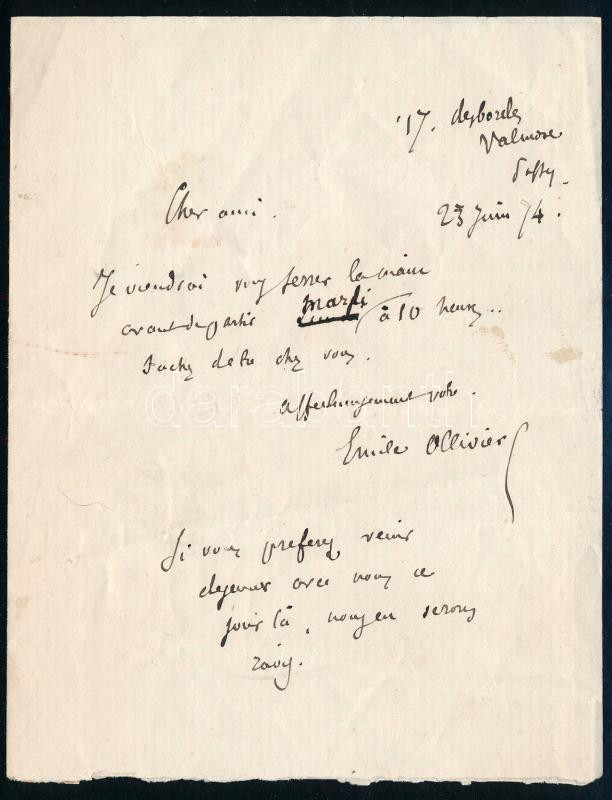 17. desbordes
Valmore
Passy.
23 Juin 74.
Cher ami.
Je viendrai vous serrer la main
avant de partir mardi à 10 heures..
tachez detre chez vous.
affectueusement votre.
Emile Ollivier
Si vous preferez venir
dejeuner avec nous ce
jour là, nous en serons
ravis.
darabanth